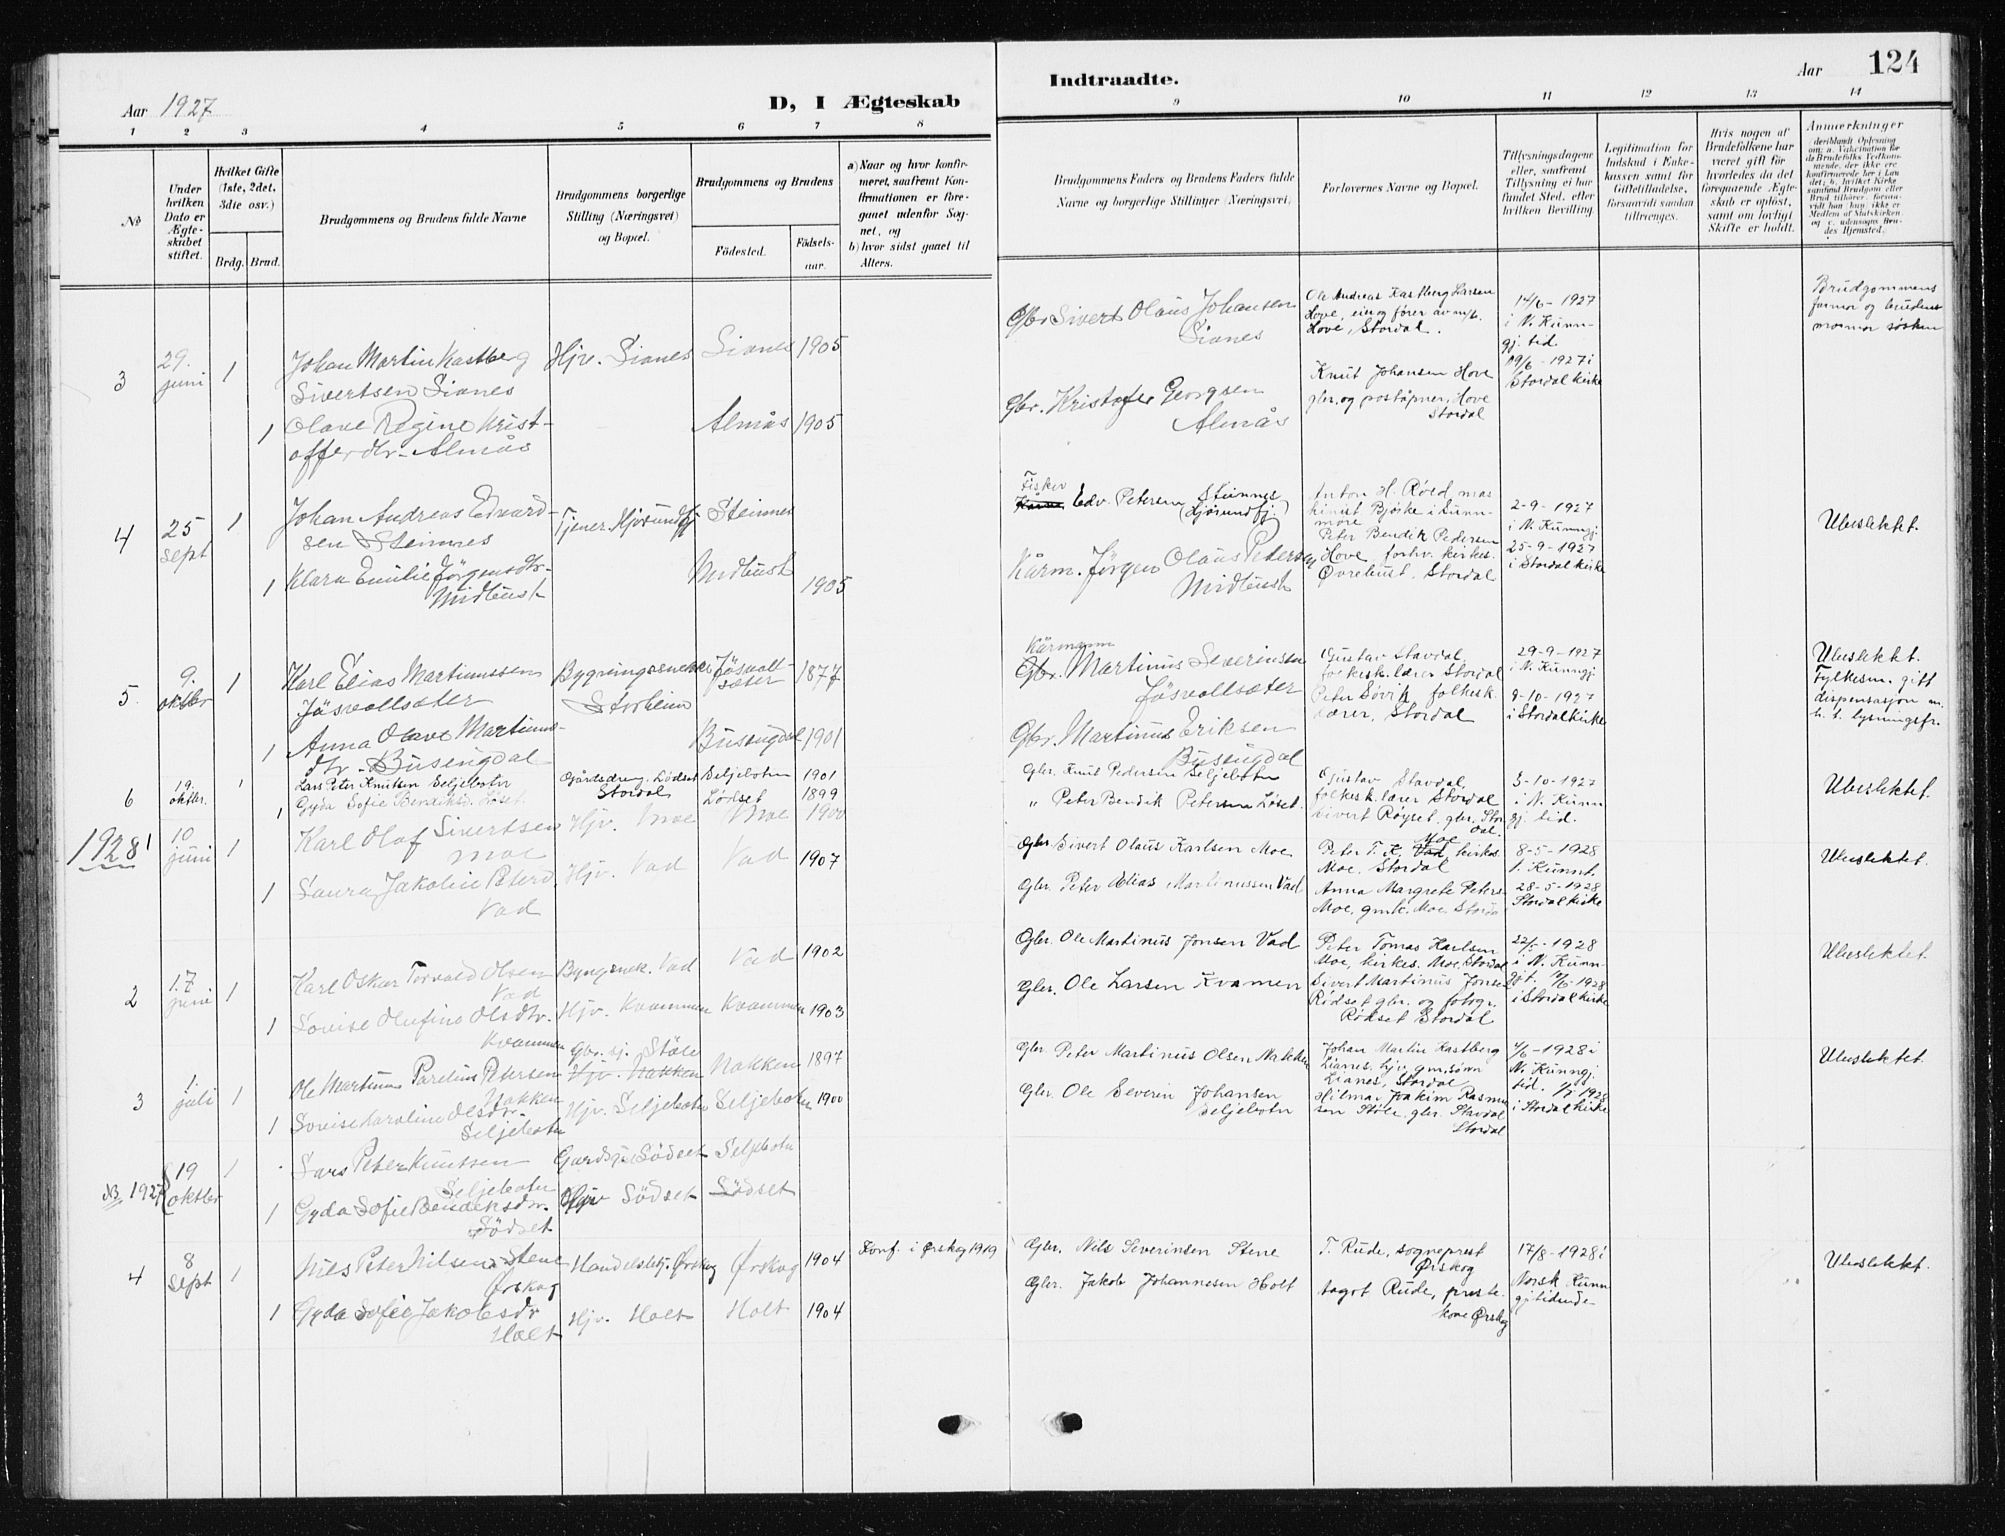 Aar 1927
D, I Ægteskab
Indtraadte.
Aar 124
1 2 3 4 5 6 7 8 9 10 11 12 13 14
No
Under hvilken Dato er Ægteskabet stiftet.
Hvilket Gifte (1ste, 2det, 3die osv.)
Brdg. Brud.
Brudgommens og Brudens fulde Navne
Brudgommens borgerlige Stilling (Næringsvei) og Bopæl.
Brudgommens og Brudens
Födested.
Födselsaar.
a) Naar og hvor konfirmeret, saafremt Konfirmationen er foregaaet udenfor Sognet, og
b) hvor sidst gaaet til Alters.
Brudgommens Faders og Brudens Faders fulde Navne og borgerlige Stillinger (Næringsvei)
Forlovernes Navne og Bopæl.
Tillysningsdagene eller, saafremt Tillysning ei har fundet Sted, efter hvilken Bevilling.
Legitimation for Indskud i Enkekassen samt for Giftetilladelse, forsaavidt saadan tiltrænges.
Hvis nogen af Brudefolkene har været gift för hvorledes da det foregaaende Ægteskab er oplöst, samt om lovligt Skifte er holdt.
Anmærkninger
3 29. juni 1 Johan Martin Kastberg Sivertsen Lianes
Hjv. Lianes Lianes 1905
Gbr. Sivert Olaus Johansen Lianes
Ole Andreas Kastberg Larsen Hove, eier og fører av m/k. Hove, Stordal.
14/6 - 1927 i N. Kunngj. tid.
Brudgommens farmor og brudens mormor søsken
1 Olave Regine Kristofferdtr. Almås
Almås 1905
Gbr. Kristofer Georgsen Almås
Knut Johansen Hove gbr. og poståpner, Hove Stordal
19/6 - 1927 i Stordal kirke
4 25 sept 1 Johan Andreas Edvardsen Steinnes
Tjener. Hjørundfj Steinnes
Fisker Edv. Petersen Steinnes (Hjörundfj)
Anton H. Röed maskinist Bjørke i Sunnmøre
2-9-1927 i N. Kunngj.
Ubeslektet.
1 Klara Emilie Jörgensdtr. Midtbust
Midtbust 1905
Kårm. Jörgen Olaus Petersen Midtbust
Peter Bendik Pedersen Hove, forhv. kirkes. Øvrebust. Stordal
25-9-1927 i Stordal kirke
5. 9. oktbr 1 Karl Elias Martinussen Jäsvollsæter
Bygningssnekker Storheim Jäsvollsæter 1877
Kårmann Gbr. Martinus Severinsen Jäsvollsæter
Gustav Stavdal, folkesk.lærer Stordal
29-9-1927 i N. Kunngj.
Ubeslektet.
1 Anna Olave Martinusdtr. Busengdal
Busengdal 1901
Gbr. Martinus Eriksen Busengdal
Peter Søvik, folkesk. lærer, Stordal
9-10-1927 i Stordal kirke
Fylkesm. gitt dispensasjon m. h. t. lysningsfr.
6 19. oktbr. 1 Lars Peter Knutsen Seljebotn
Gårdsdreng, Lødset Stordal Seljebotn 1901
Gbr. Knut Pedersen Seljebotn
Gustav Stavdal, folkesk.lærer Stordal
3-10-1927 i N. Kunngj. tid.
Ubeslektet.
1 Gyda Sofie Bendiksd. Løset. Lødset 1899
" Peter Bendik Petersen Løset.
Sivert Røyset, gbr. Stordal.
1928 1 10 juni 1 Karl Olaf Sivertsen Moe
Hjv. Moe Moe 1900
Gbr Sivert Olaus Karlsen Moe
Peter T. K. Moe, kirkes. Moe, Stordal
8-5-1928 i. Kunnt.
Ubeslektet.
1 Laura Jakoline Petersd. Vad
Hjv. Vad Vad 1907
Gbr. Peter Elias Martinussen Vad
Anna Margrete Peters. Moe, gmk. Moe, Stordal
28-5-1928 Stordal kirke
2 17 juni 1 Karl Oskar Torvald Olsen Vad
Byngsnek. Vad Vad 1902
Gbr. Ole Martinus Jonsen Vad
Peter Tomas Karlsen Moe, kirkes. Moe, Stordal
22/5-1928 i N. Kunngjt.
Ubeslektet.
1 Lovise Olufine Olsdtr. Kvammen
Hjv. Kvammen Kvammen 1903
Gbr. Ole Larsen Kvamen
Sivert Martinus Jonsen Rödset gbr. og fotogr. Rödset Stordal
/6-1928 i Stordal kirke
3 1. juli 1 Ole Martinus Parelius Petersen Nakken
Gbr. sj. Støle Hjv. Nakken Nakken 1897
Gbr Peter Martinus Olsen Nakken
Johan Martin Kastberg Lianes, hjv. gm.sönn Lianes, Stordal
4/6-1928 i N. Kunngj. tid.
Ubeslektet.
1 Lovise Karoline Olsdtr. Seljebotn
Hjv. Seljebotn Seljebotn 1900
Gbr. Ole Severin Johansen Seljebotn
Hilmar Joakim Rasmussen Støle, gbr. Stavdal Stordal
1/7 1928 i Stordal kirke
NB. 1927 19 oktbr 1 Lars Peter Knutsen Seljebotn
Gardsg Lödset Seljebotn
1 Gyda Sofie Bendiksdtr. Lödset
Hjv Lödset Lödset
4 8 sept 1 Nils Peter Nilsen Stene Ørskog
Handelsbtj. Ørskog Ørskog 1904
Konf. i Ørskog 1919
Gbr. Nils Severinsen Stene
T. Rude, sogneprest Ørskog
17/8-1928 i Norsk Kunngjtidende
Ubeslektet.
1 Gyda Sofie Jakobsdtr Holt
Hjv. Holt Holt 1904
Gbr. Jakob Johannesen Holt
Rude, prestekone Ørskog